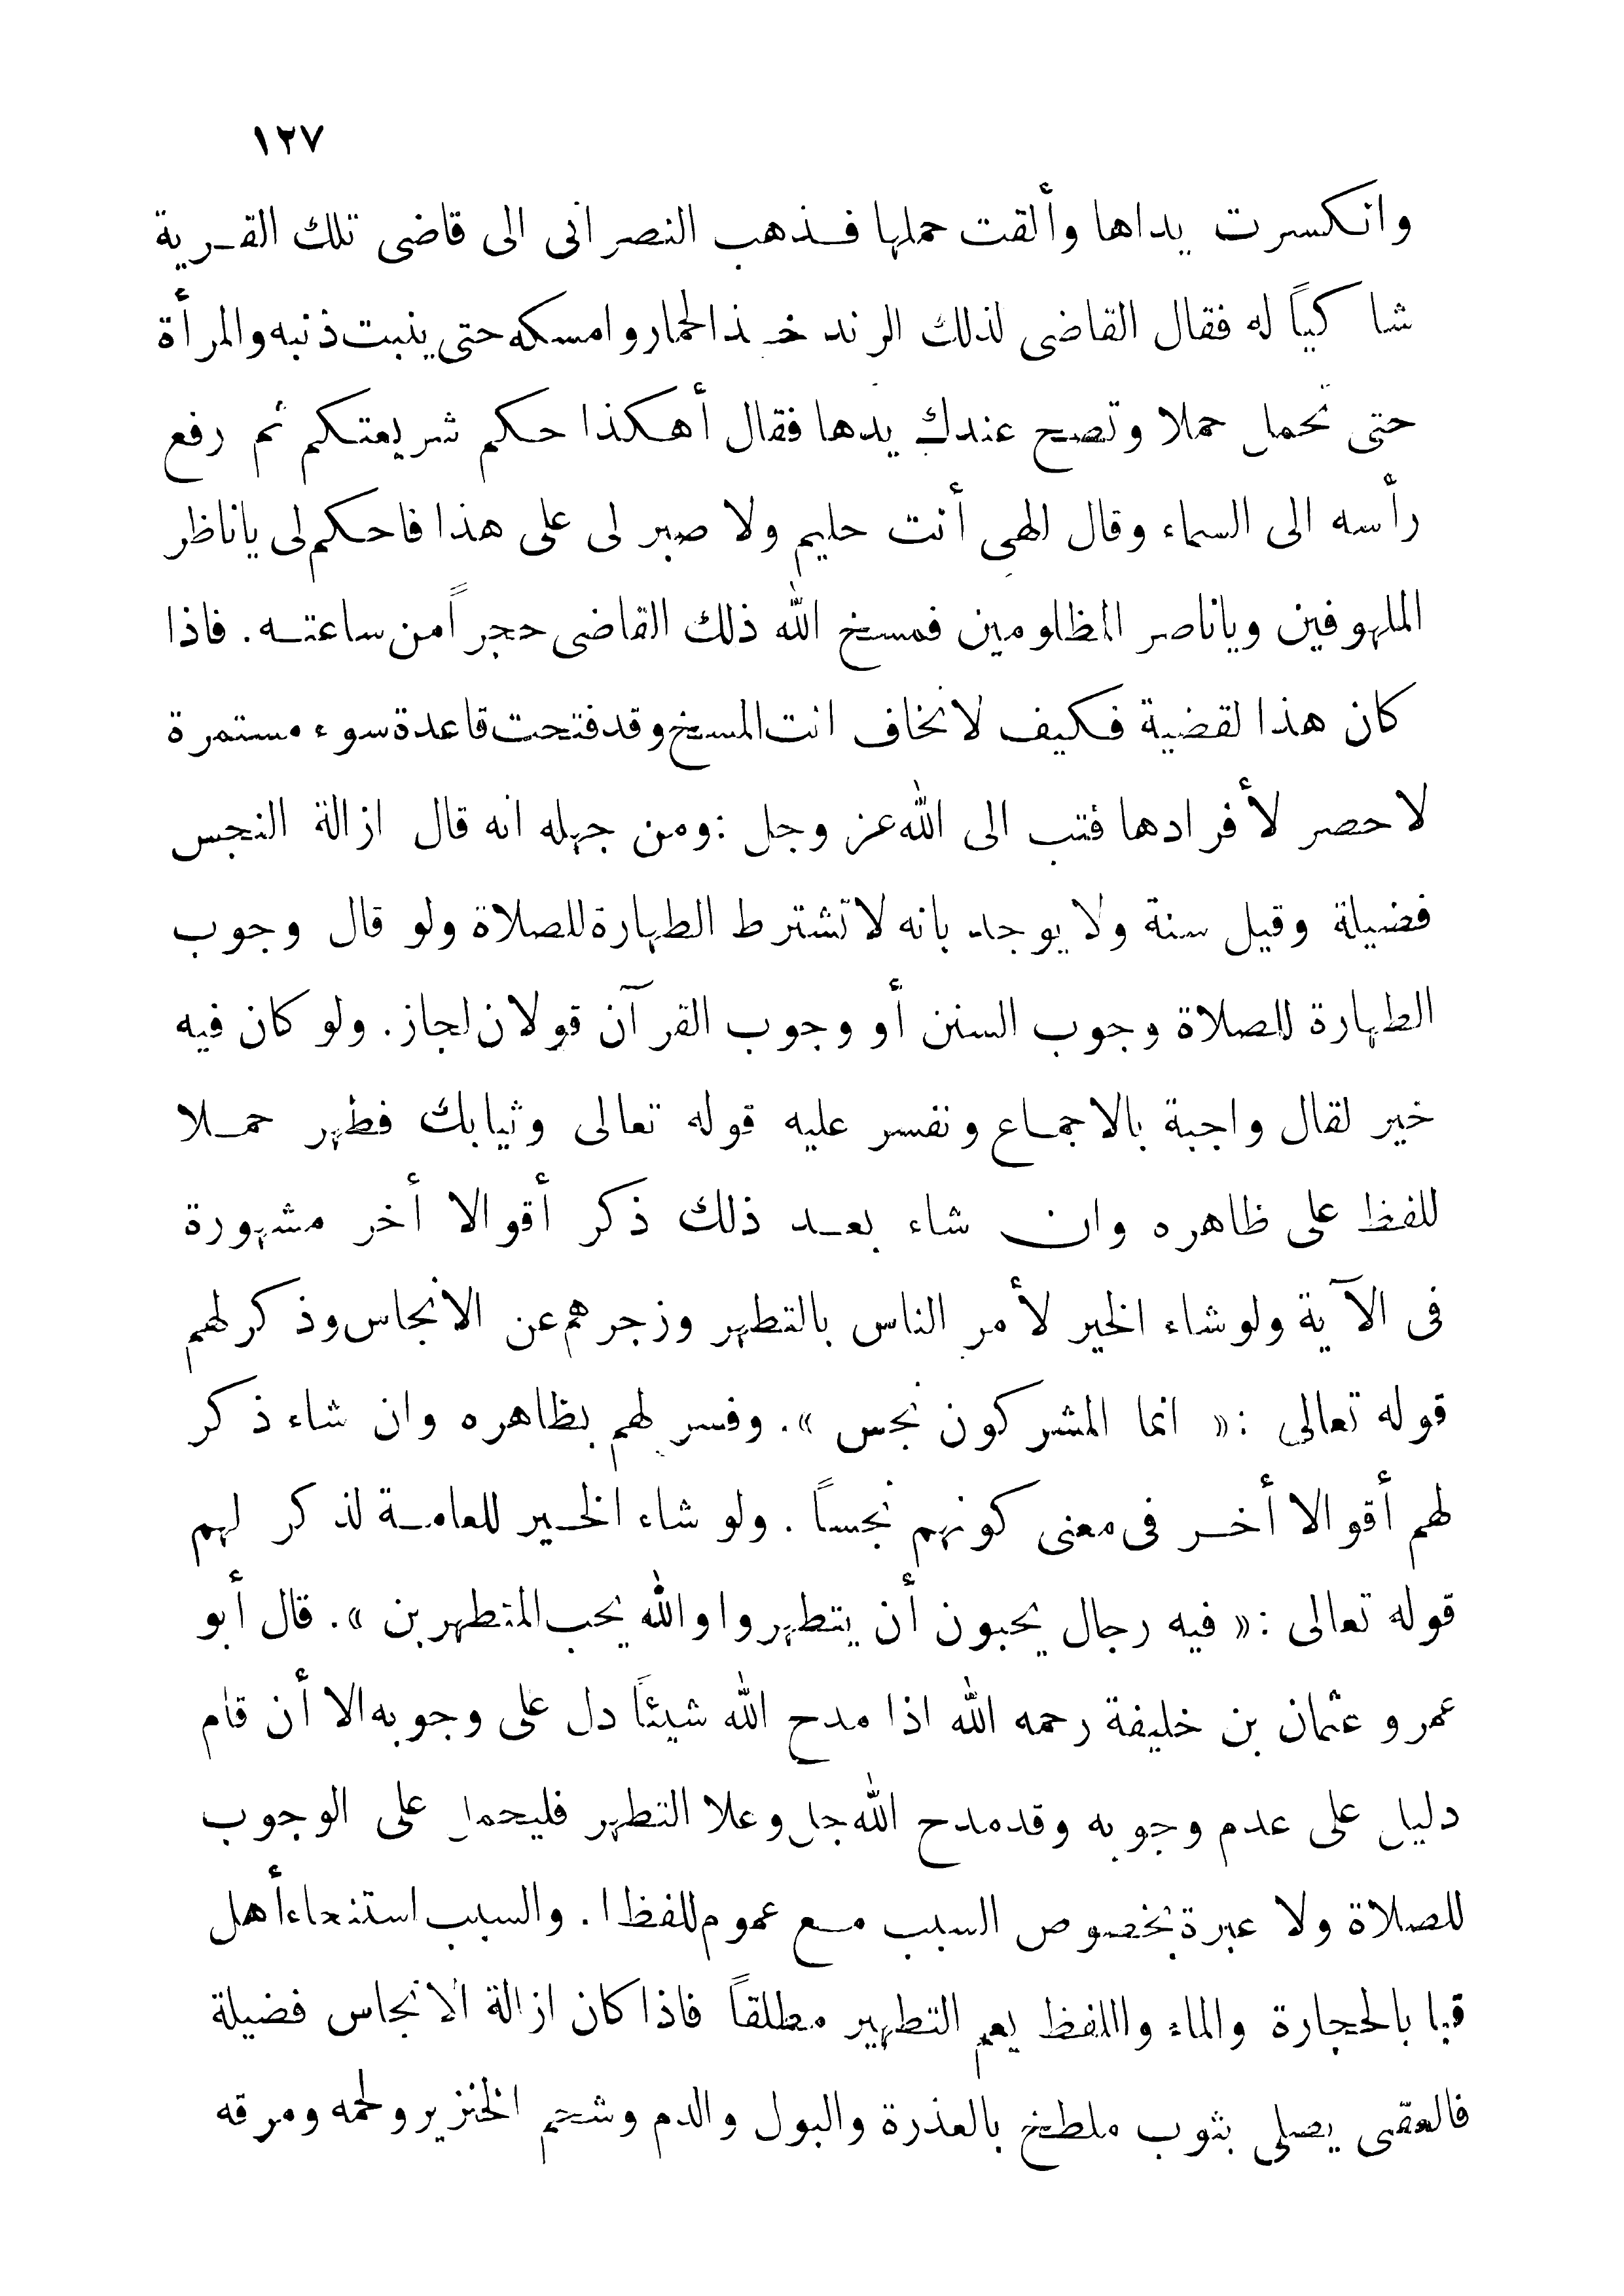 ١٢٧
وانكسرت يداها وألقت حملها فذهب النصرانى الى قاضى تلك القرية
شاكياً له فقال القاضى لذلك الرند خذ الحمار وامسكه حتى ينبت ذنبه والمرأة
حتى تحمل حملا وتصح عندك يدها فقال أهكذا حكم شريعتكم ثم رفع
رأسه الى السماء وقال الهى أنت حليم ولا صبر لى على هذا فاحكم لى ياناظر
الملهوفين وياناصر المظلومين فمسخ الله ذلك القاضى حجراً من ساعته. فاذا
كان هذا لقضية فكيف لا تخاف انت المسخ وقد فتحت قاعدة سوء مستمرة
لا حصر لأفرادها فتب الى الله عز وجل : ومن جهله انه قال ازالة النجس
فضيلة وقيل سنة ولا يوجد بانه لا تشترط الطهارة للصلاة ولو قال وجوب
الطهارة للصلاة وجوب السنن أو وجوب القرآن قولان لجاز. ولو كان فيه
خير لقال واجبة بالاجماع ونفسر عليه قوله تعالى وثيابك فطهر حملا
للفظ على ظاهره وان شاء بعد ذلك ذكر أقوالا أخر مشهورة
فى الآية ولو شاء الخير لأمر الناس بالتطهر وزجرهم عن الانجاس وذكر لهم
قوله تعالى :« انما المشركون نجس ». وفسر لهم بظاهره وان شاء ذكر
لهم أقوالا أخر فى معنى كونهم نجساً . ولو شاء الخير للعامة لذكر لهم
قوله تعالى :« فيه رجال يحبون أن يتطهروا والله يحب المتطهرين ». قال أبو
عمرو عثمان بن خليفة رحمه الله اذا مدح الله شيئاً دل على وجوبه الا أن قام
دليل على عدم وجوبه وقد مدح الله جل وعلا التطهر فليحمل على الوجوب
للصلاة ولا عبرة بخصوص السبب مع عموم للفظ ا. والسبب استنجاء أهل
قبا بالحجارة والماء واللفظ يعم التطهير مطلقاً فاذا كان ازالة الانجاس فضيلة
فالعقبى يصلى بثوب ملطخ بالعذرة والبول والدم وشحم الخنزير ولحمه ومرقه